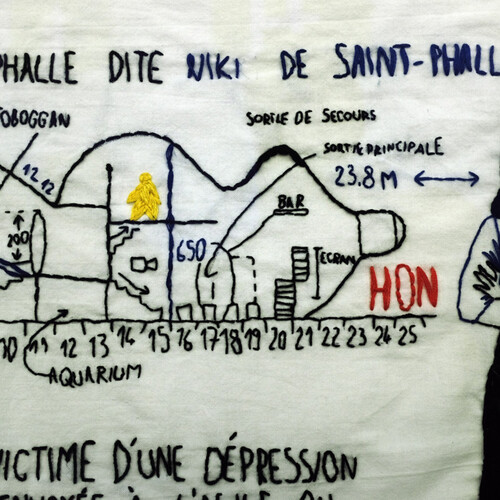 PHALLE DITE NIKI DE SAINT-PHALL
TOBOGGAN
SORTIE DE SECOURS
SORTIE PRINCIPALE
12 12
23.8 M
BAR
200
650
ECRAN
HON
10 11 12 13 14 15 16 17 18 19 20 21 22 23 24 25
AQUARIUM
VICTIME D'UNE DÉPRESSION